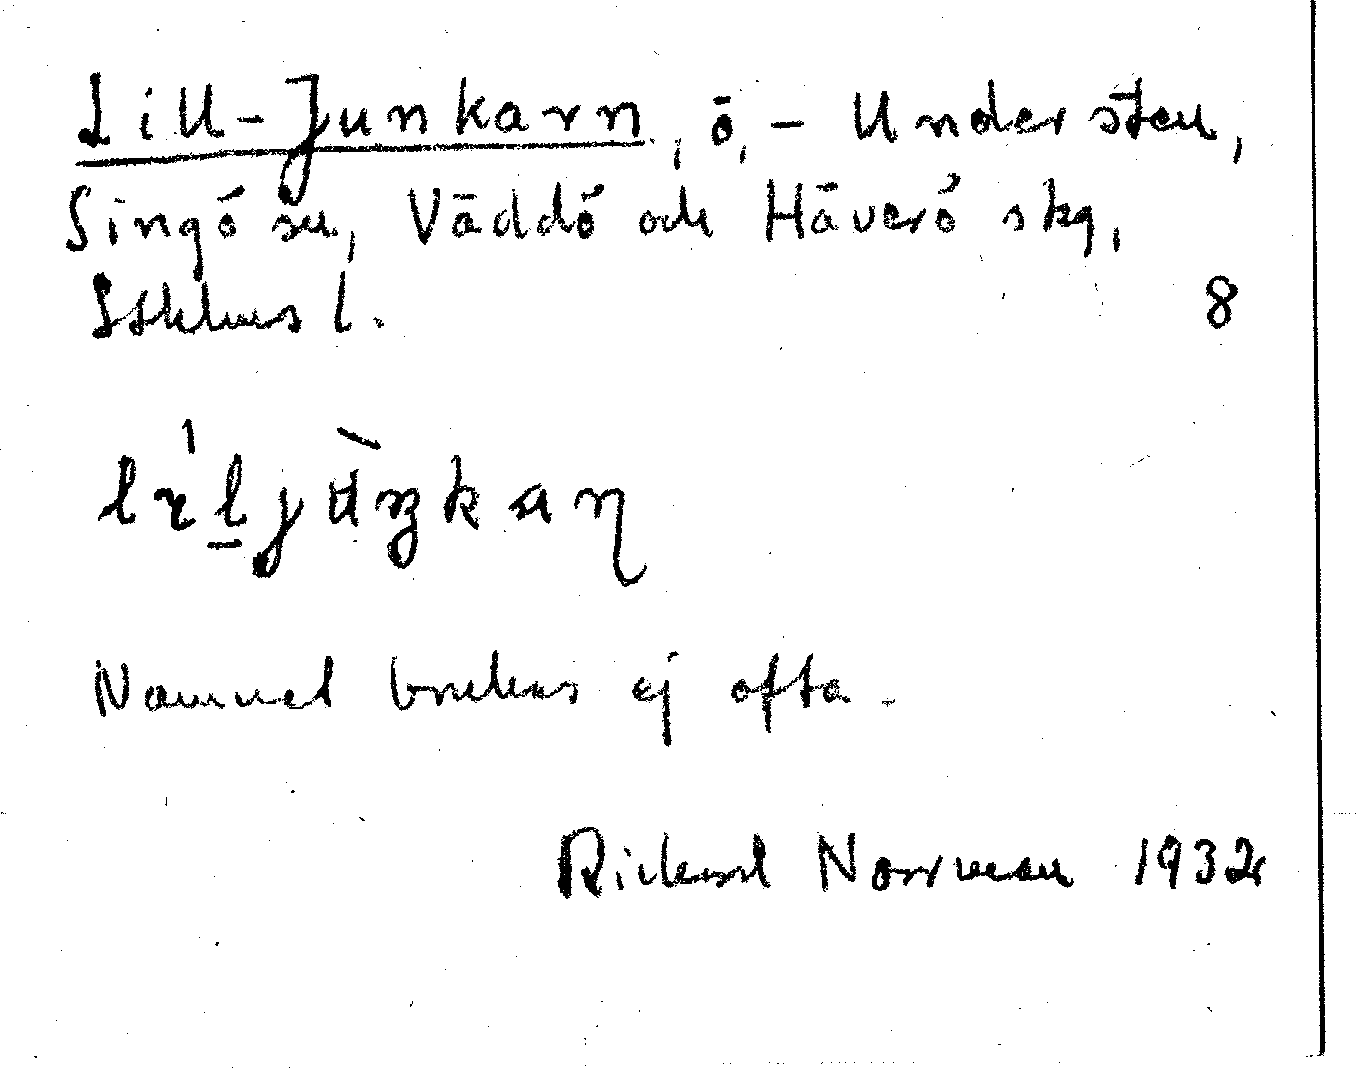 Lill-Junkarn, ö, - Understen,
Singö sn, Väddö och Häverö skg,
Sthlms l.
8
Namnet brukas ej ofta.
Rickard Norrman 1932